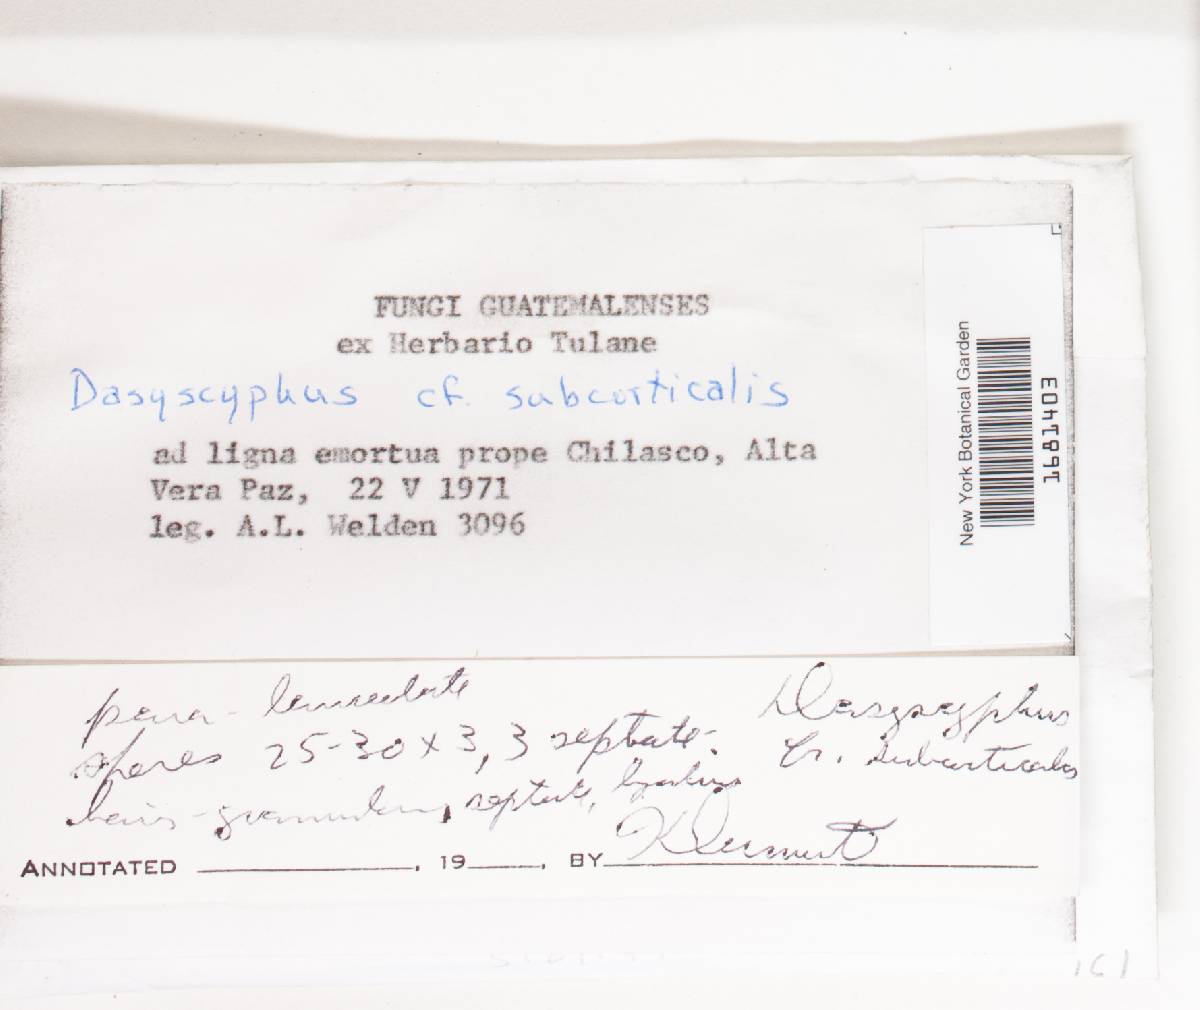 FUNGI GUATEMALENSES
ex Herbario Tulane
Dasyscyphus cf. subcorticalis
ad ligna emortua prope Chilasco, Alta
Vera Paz, 22 V 1971
leg. A.L. Welden 3096
New York Botanical Garden
para-lanceolate
spores 25-30 x 3, 3 septate.
hairs-granular, septate, hyaline
Dasyscyphus
cf. subcorticalis
ANNOTATED , 19 , BY K Dumont
161